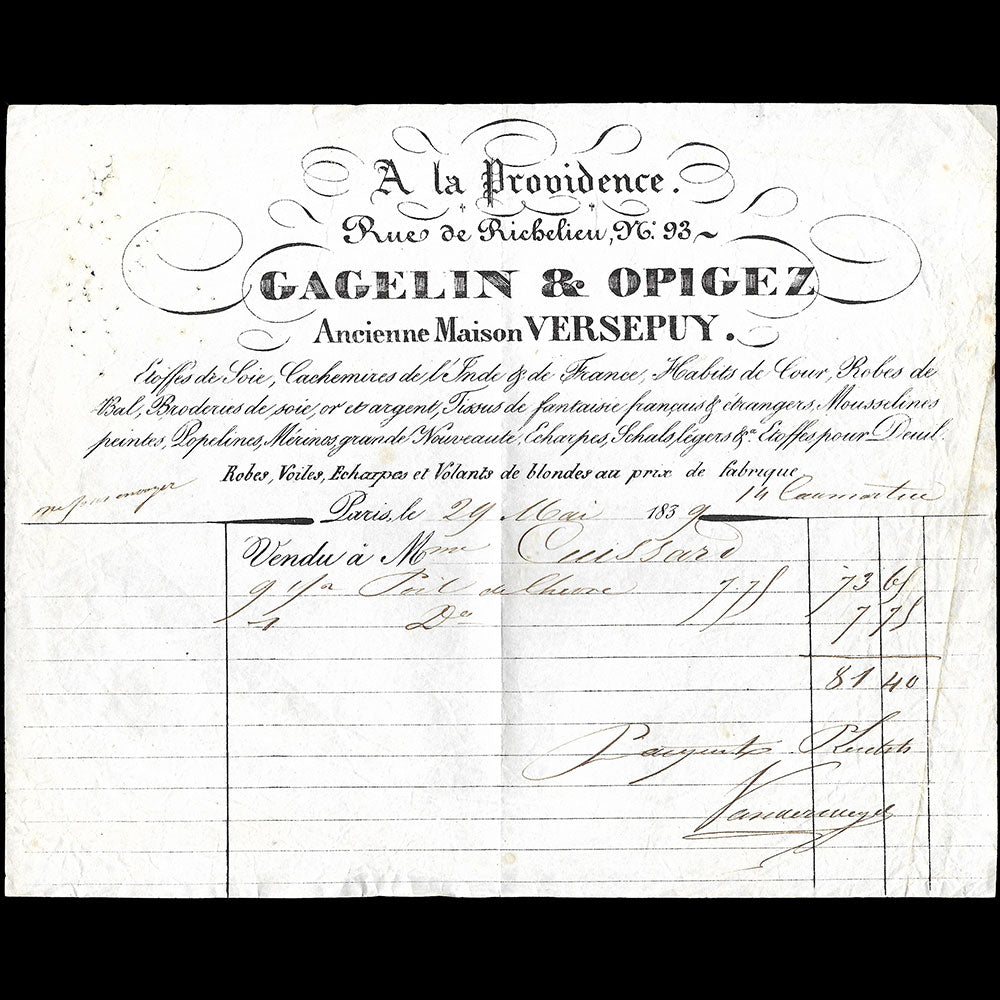 A la Providence.
Rue de Richelieu, No. 93
GAGELIN & OPIGEZ
Ancienne Maison VERSEPUY.
Etoffes de Soie, Cachemires de l'Inde & de France, Habits de Cour, Robes de
Bal, Broderies de soie, or et argent, Tissus de fantaisie français & étrangers, Mousselines
peintes, Popelines, Mérinos, grande Nouveauté, Echarpes, Schals, légers &a. Etoffes pour Deuil.
Robes, Voiles, Echarpes et Volants de blondes au prix de fabrique
ne pas envoyer
14 Caumartin
Paris, le 29 Mai 1839
Vendu à Mme Cuissard
9 1/2 Poil de Chevre 7.75 73 65
1 Do 7 75
81 40